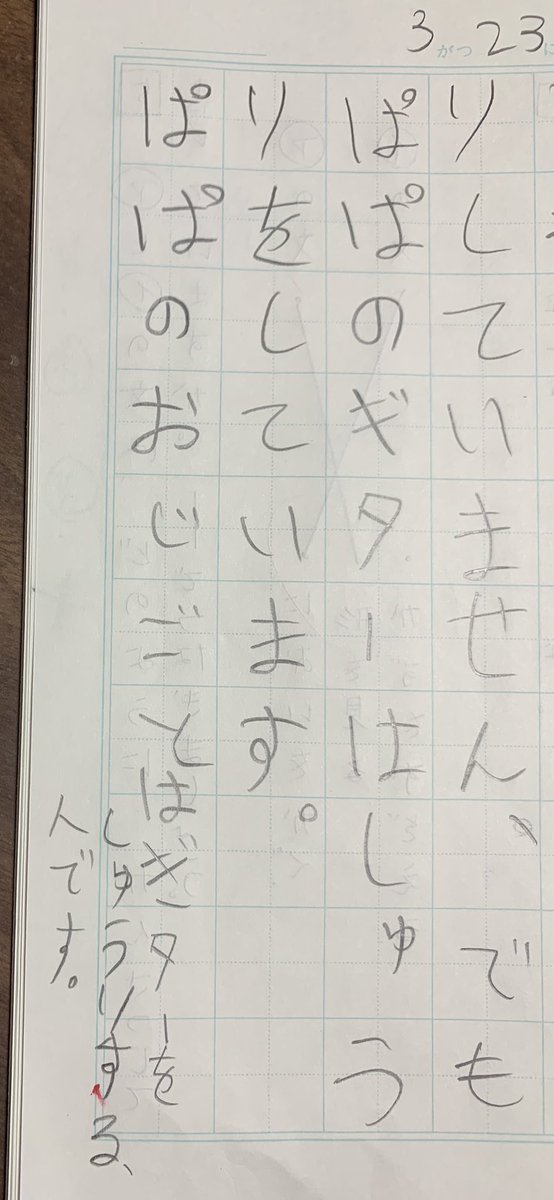 3がつ23に
りしていません、でも
ぱぱのギターはしゅう
りをしています。
ぱぱのおしごとはギターを
しゅうりする、
人です。